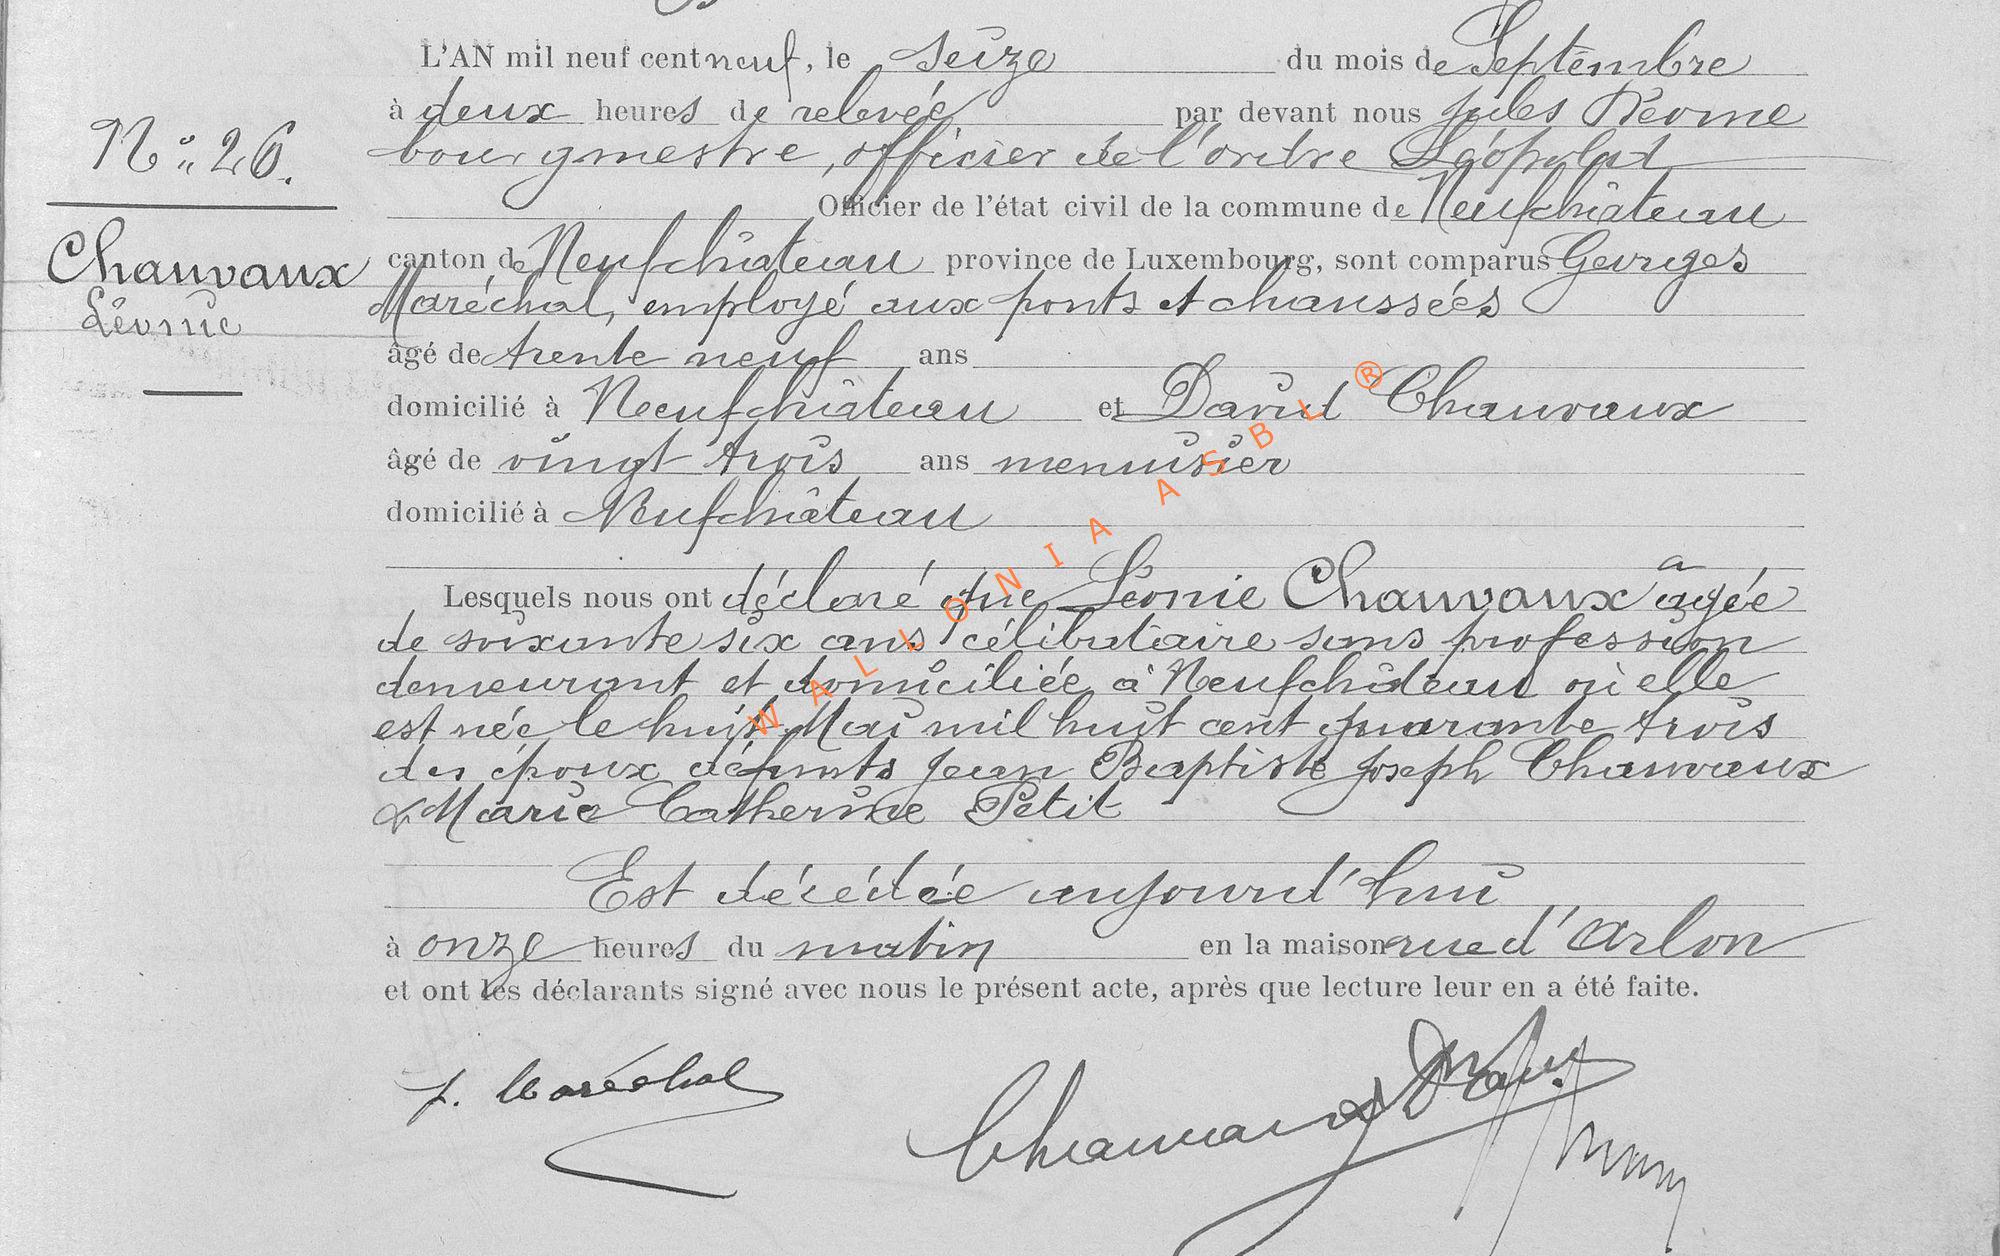 L'AN mil neuf cent neuf, le seize du mois de Septembre
à deux heures de relevée par devant nous Jules
bourgmestre, officier de l'ordre Léopold
Officier de l'état civil de la commune de Neufchâteau
canton de Neufchâteau province de Luxembourg, sont comparus Georges
Maréchal, employé aux ponts et chaussées
âgé de trente neuf ans
domicilié à Neufchâteau et David Chauvaux
âgé de vingt trois ans menuisier
domicilié à Neufchâteau
Lesquels nous ont déclaré que Léonie Chauvaux âgée
de soixante six ans célibataire sans profession
demeurant et domiciliée à Neufchâteau où elle
est née le huit Mai mil huit cent quarante trois
des époux défunts Jean Baptiste Joseph Chauvaux
& Marie Catherine Petit
Est décédée aujourd'hui
à onze heures du matin en la maison rue d'Arlon
et ont les déclarants signé avec nous le présent acte, après que lecture leur en a été faite.
Maréchal
Chauvaux
N° 26.
Chauvaux
Léonie
WALLONIA ASBL ®